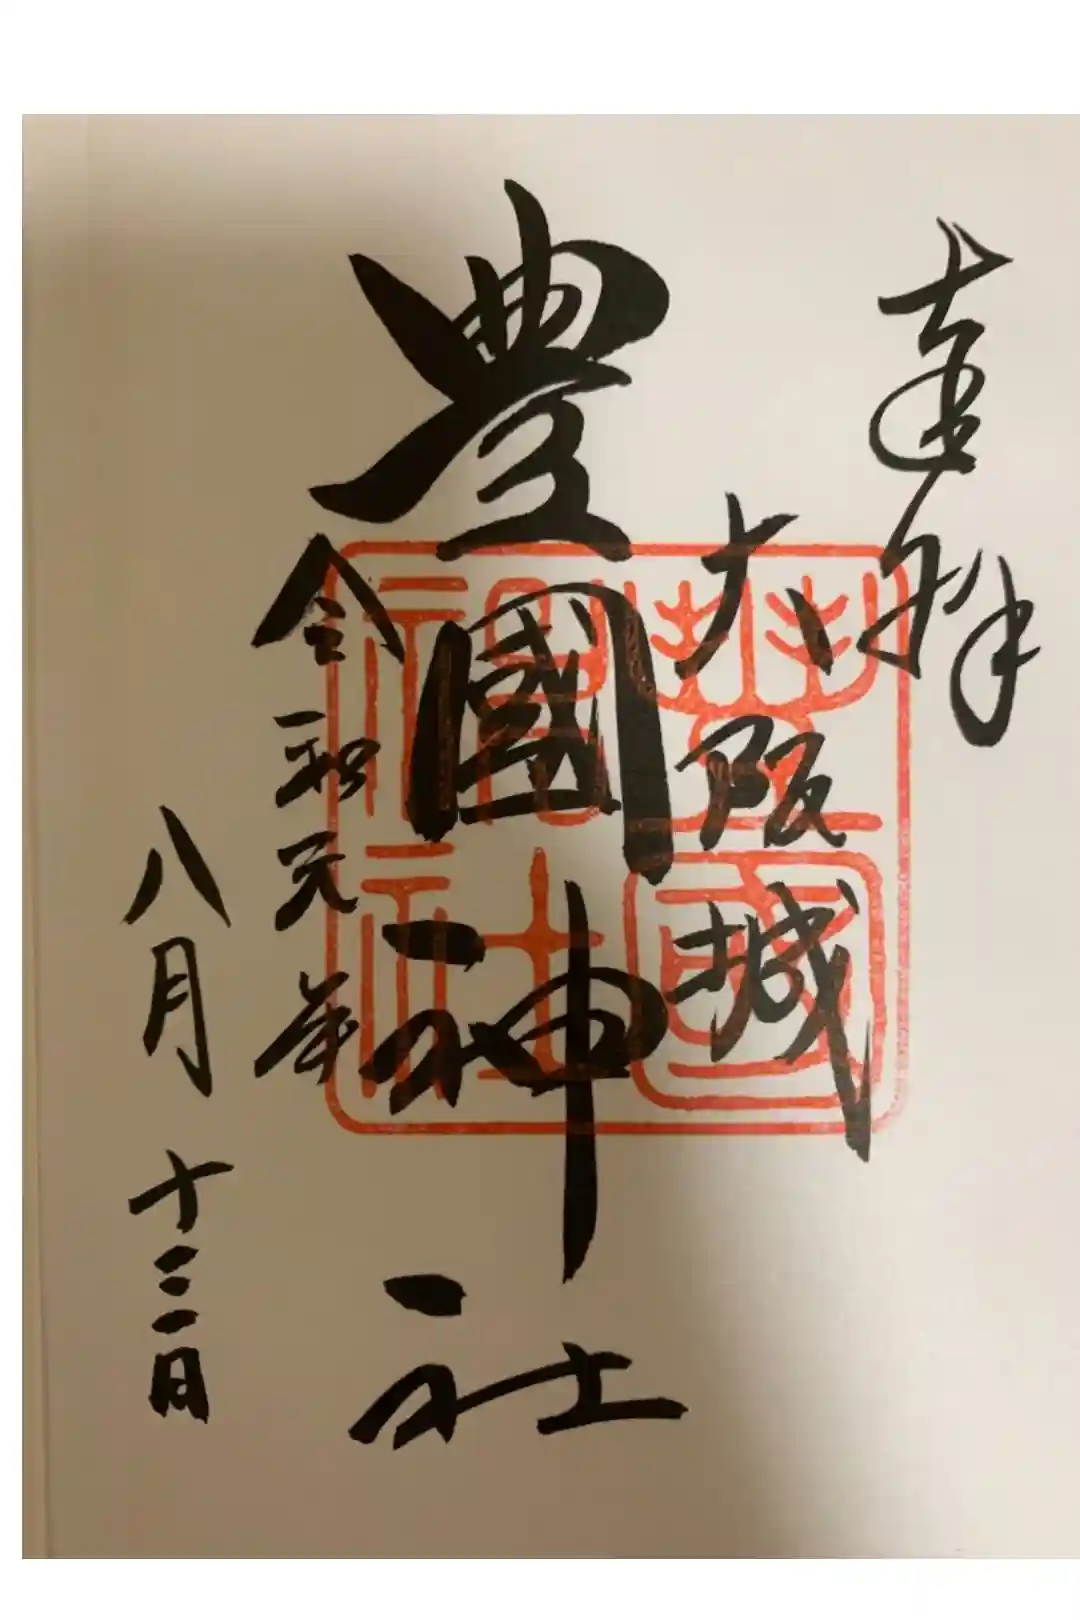 奉拝
大阪城
豊國神社
令和元年
八月十三日
豐國
神社